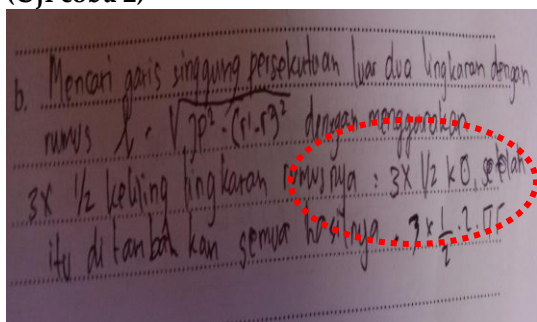 (Uji coba 2)
b. Mencari garis singgung persekutuan luar dua lingkaran dengan
rumus l = √jp² - (r1-r)² dengan menggunakan
3x 1/2 keliling lingkaran rumusnya : 3x 1/2 kO, setelah
itu di tambah kan semua hasilnya . 3 x 1/2 . 2. π r